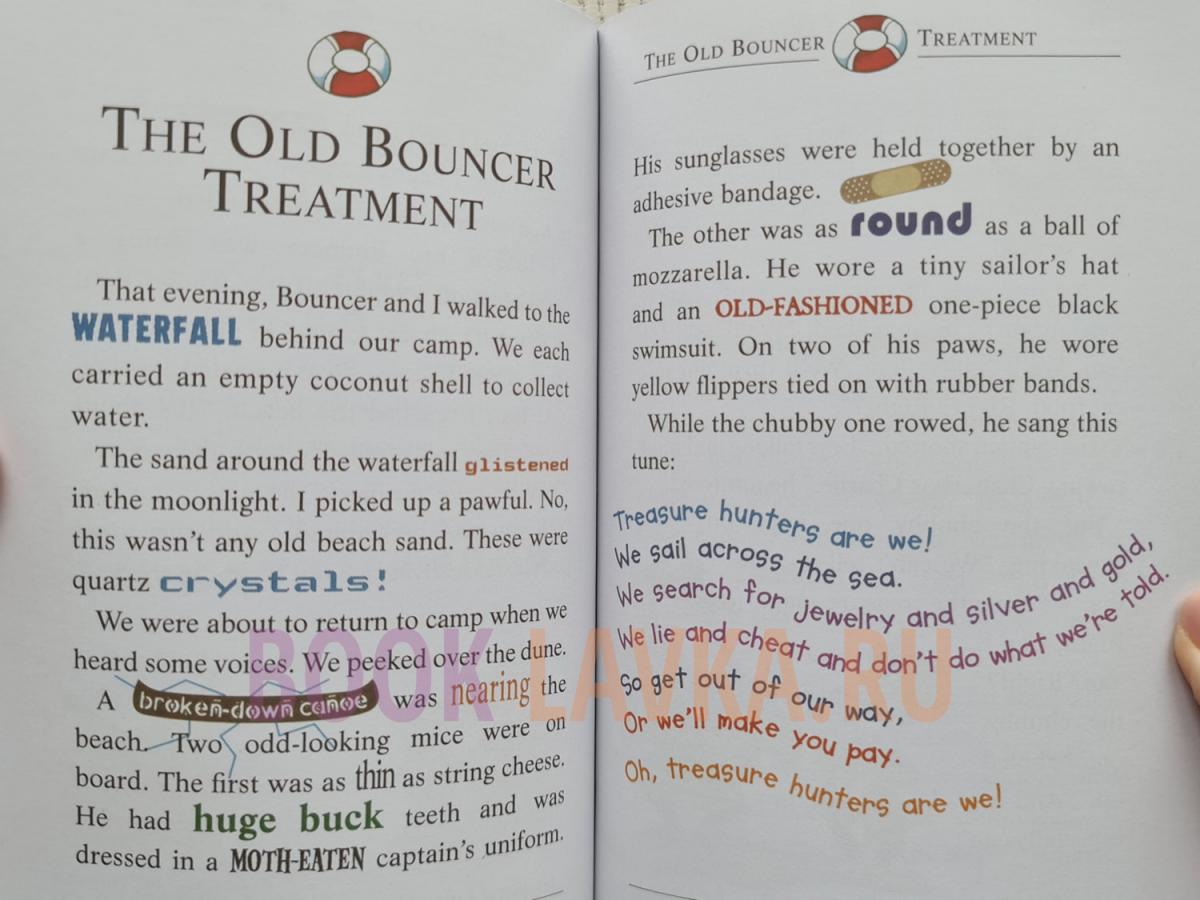 THE OLD BOUNCER
TREATMENT
That evening, Bouncer and I walked to the
WATERFALL behind our camp. We each
carried an empty coconut shell to collect
water.
The sand around the waterfall glistened
in the moonlight. I picked up a pawful. No,
this wasn't any old beach sand. These were
quartz crystals!
We were about to return to camp when we
heard some voices. We peeked over the dune.
A broken-down canoe was nearing the
beach. Two odd-looking mice were on
board. The first was as thin as string cheese.
He had huge buck teeth and was
dressed in a MOTH-EATEN captain's uniform.
THE OLD BOUNCER TREATMENT
His sunglasses were held together by an
adhesive bandage.
The other was as round as a ball of
mozzarella. He wore a tiny sailor's hat
and an OLD-FASHIONED one-piece black
swimsuit. On two of his paws, he wore
yellow flippers tied on with rubber bands.
While the chubby one rowed, he sang this
tune:
Treasure hunters are we!
We sail across the sea.
We search for jewelry and silver and gold,
We lie and cheat and don't do what we're told.
So get out of our way,
Or we'll make you pay.
Oh, treasure hunters are we!
BOOK LAVKA.RU